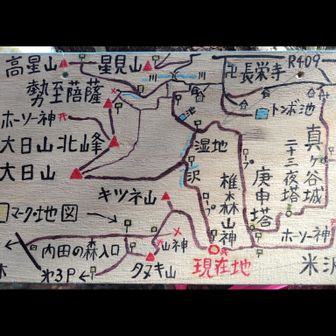 高星山
星見山
卍長栄寺
R409
勢至菩薩
トンボ池
ホーソー神
大日山北峰
大日山
湿地
沢
真ヶ谷城
二十三夜塔
庚申塔
キツネ山
椎森山神
マーク地図
山神
ホーソー神
内田の森入口
タヌキ山
現在地
米沢